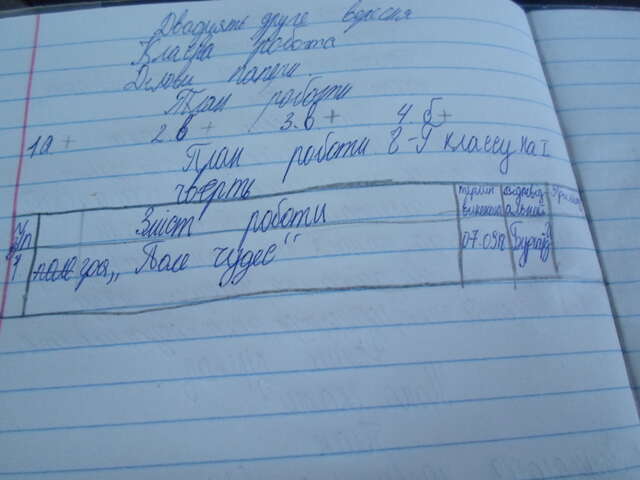 Двадцять друге вересня
Класна робота
Ділові папери.
План роботи
1а + 2.в + 3.в + 4.б +
План роботи 8-Г классу на I
чверть
№ п/п Зміст роботи термін виконан відповід альний Примітк
1 гра „Поле чудес" 07.09